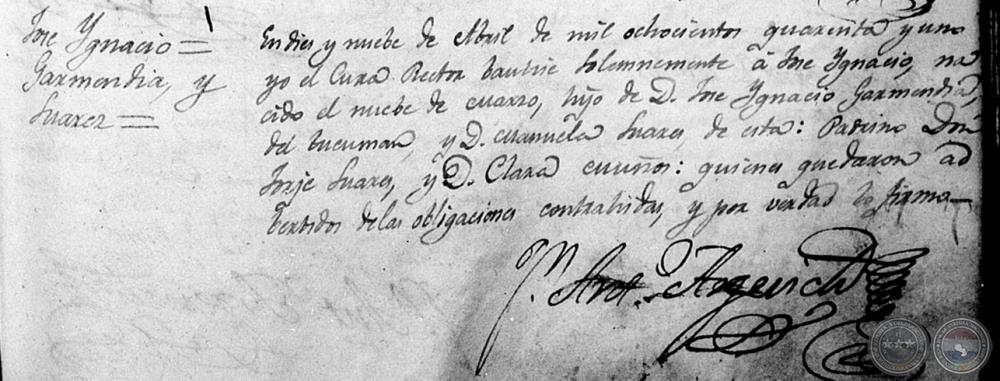 Jose Ygnacio =
Garmendia, y
Suarez =
En dies y nuebe de Abril de mil ochocientos quarenta y uno
yo el Cura Rector bautise solennemente â Jose Ygnacio, na
cido el nuebe de Marzo, hijo de D. Jose Ygnacio Garmendia,
del tucuman, y D. Manuela Suares, de esta: Padrino Don
Jorje Suares, y D. Clara Muños: quienes quedaron ad
bertidos de las obligaciones contrahidas, y por verdad lo firmo